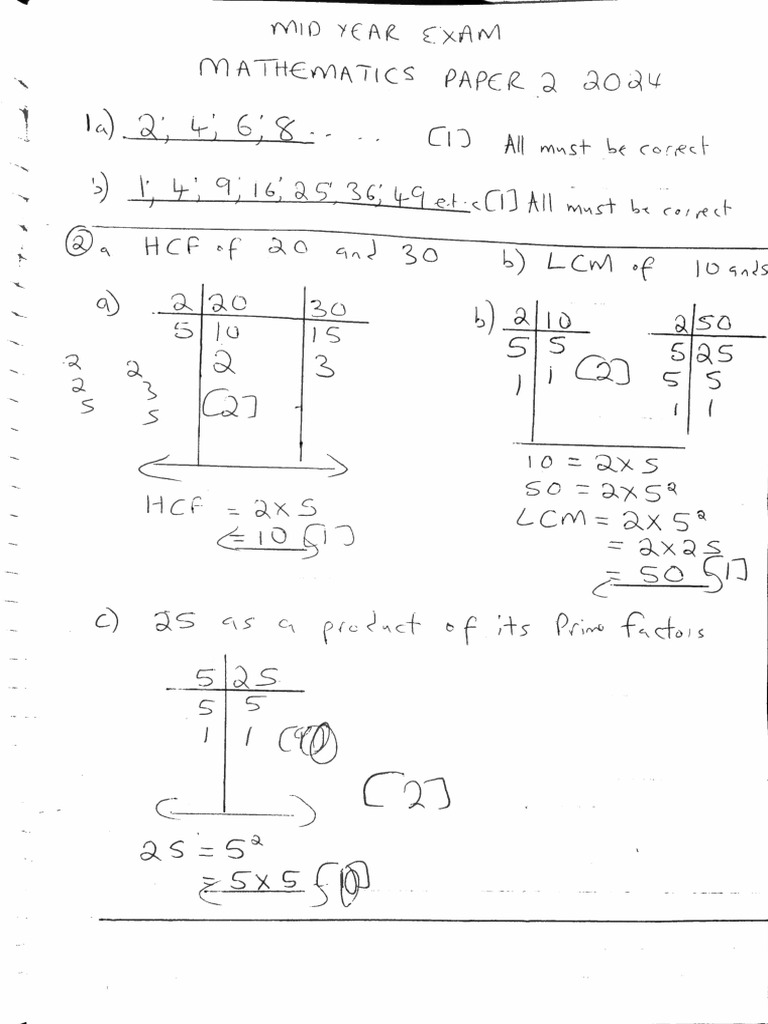 MID YEAR EXAM
MATHEMATICS PAPER 2 2024
1a) 2; 4; 6; 8 ..... [1] All must be correct
b) 1; 4; 9; 16; 25; 36; 49 e.t.c [1] All must be correct
② a HCF of 20 and 30
b) LCM of 10 and 5
a) 2 | 20 | 30
5 | 10 | 15
2 | 3
[2]
2 2
2 3
5 5
HCF = 2 x 5
= 10 [1]
b) 2 | 10
5 | 5
1 | 1 [2]
2 | 50
5 | 25
5 | 5
1 | 1
10 = 2 x 5
50 = 2 x 5²
LCM = 2 x 5²
= 2 x 25
= 50 [1]
c) 25 as a product of its Prime factors
5 | 25
5 | 5
1 | 1
[2]
25 = 5²
= 5 x 5